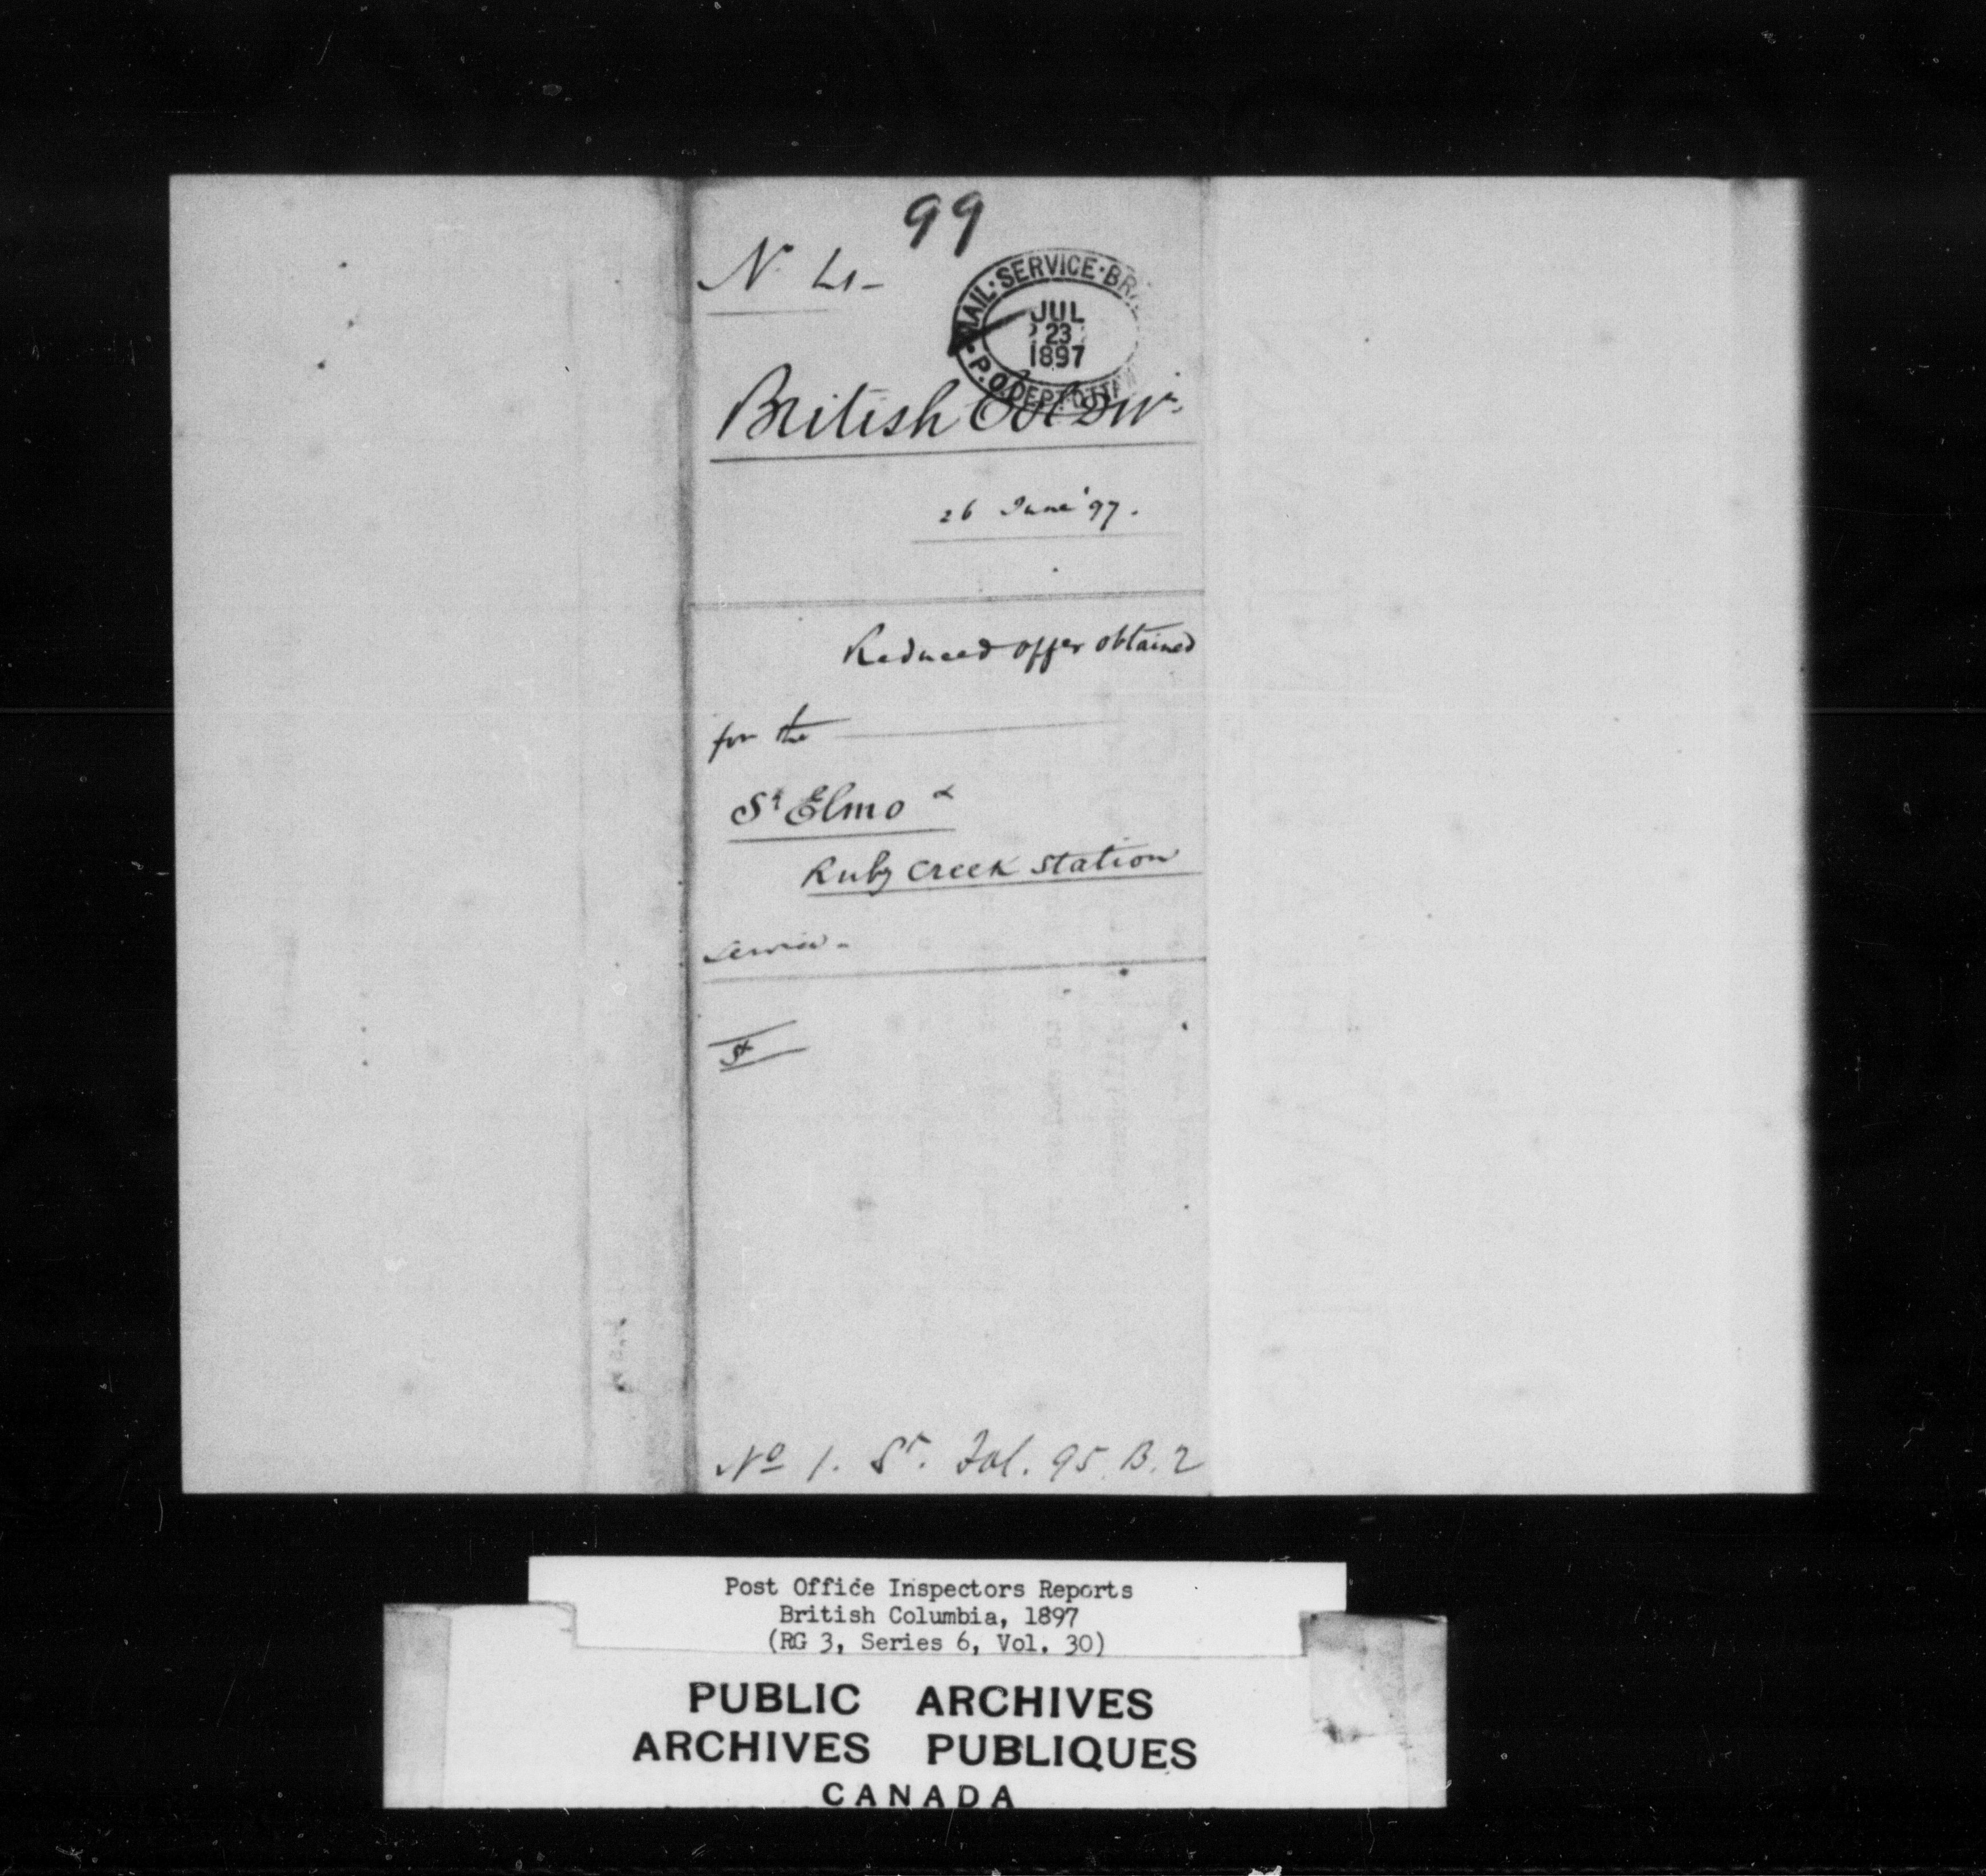 99
No 4-
MAIL·SERVICE·BR
JUL
23
1897
P.O. DEPT OTTAW
British Col Divn
26 June '97.
Reduced offer obtained
for the
St Elmo &
Ruby Creek Station
Service-
No 1. St. Fol. 95. B. 2
Post Office Inspectors Reports
British Columbia, 1897
(RG 3, Series 6, Vol. 30)
PUBLIC ARCHIVES
ARCHIVES PUBLIQUES
CANADA